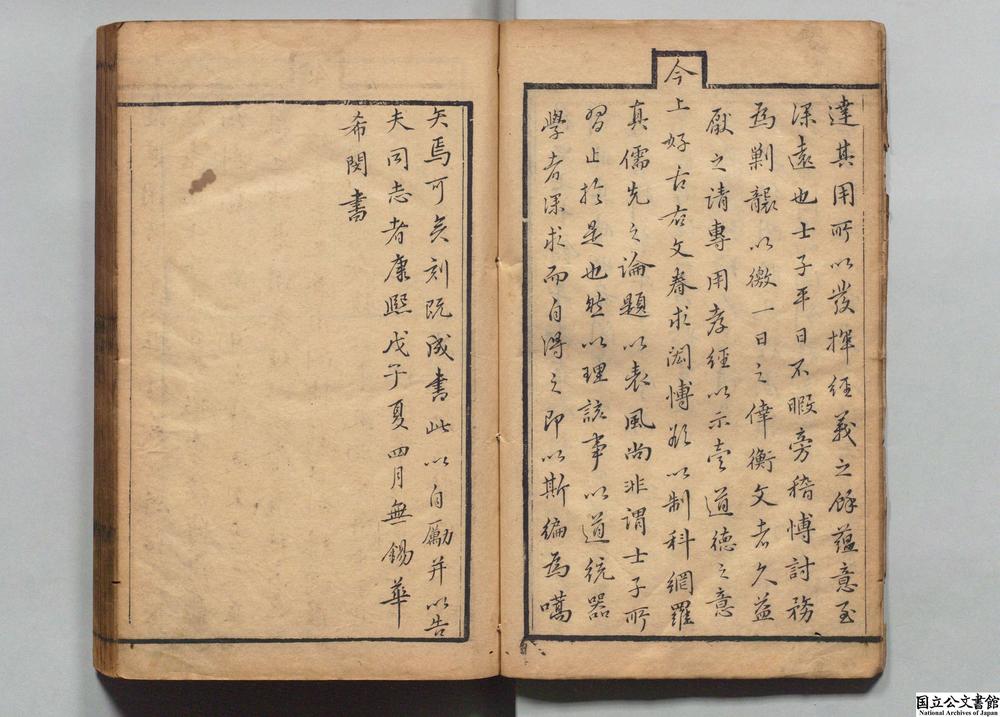 達其用所以發揮經義之餘蘊意至
深遠也士子平日不暇旁稽博討務
為剿襲以徼一日之倖衡文者久益
厭之請專用孝經以示壹道德之意
今上好古右文眷求閎博欲以制科網羅
真儒先之論題以表風尚非謂士子所
習止於是也然以理該事以道統器
學者深求而自得之即以斯編為嚆
矢焉可矣刻既成書此以自勵并以告
夫同志者康熙戊子夏四月無錫華
希閔書
国立公文書館
National Archives of Japan